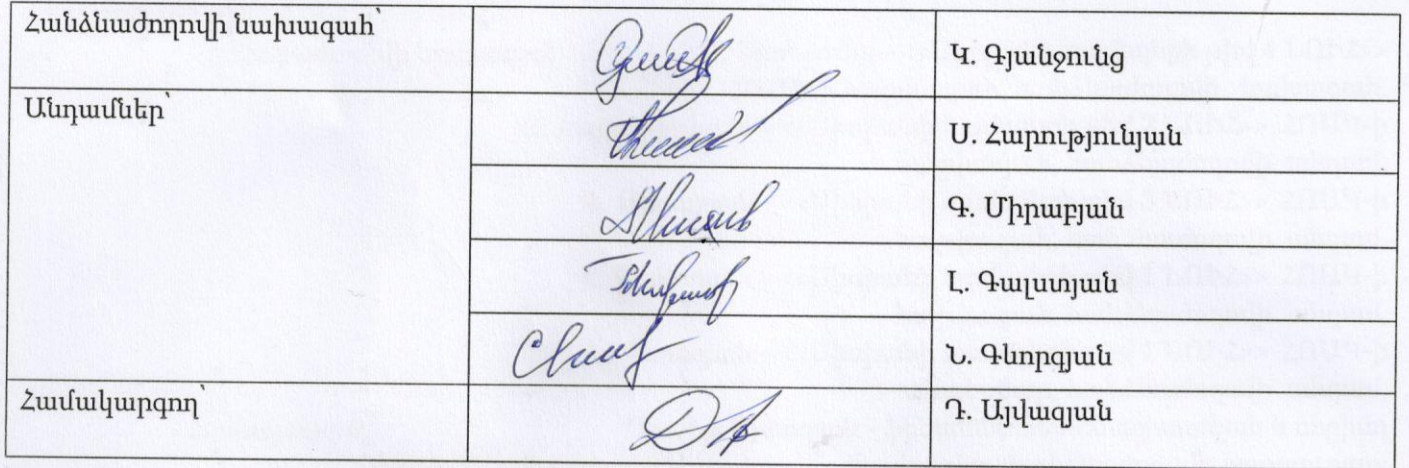 Հանձնաժողովի նախագահ՝
Կ. Գյանջունց
Անդամներ՝
Ս. Հարությունյան
Գ. Միրաբյան
Լ. Գալստյան
Ն. Գևորգյան
Համակարգող՝
Դ. Այվազյան